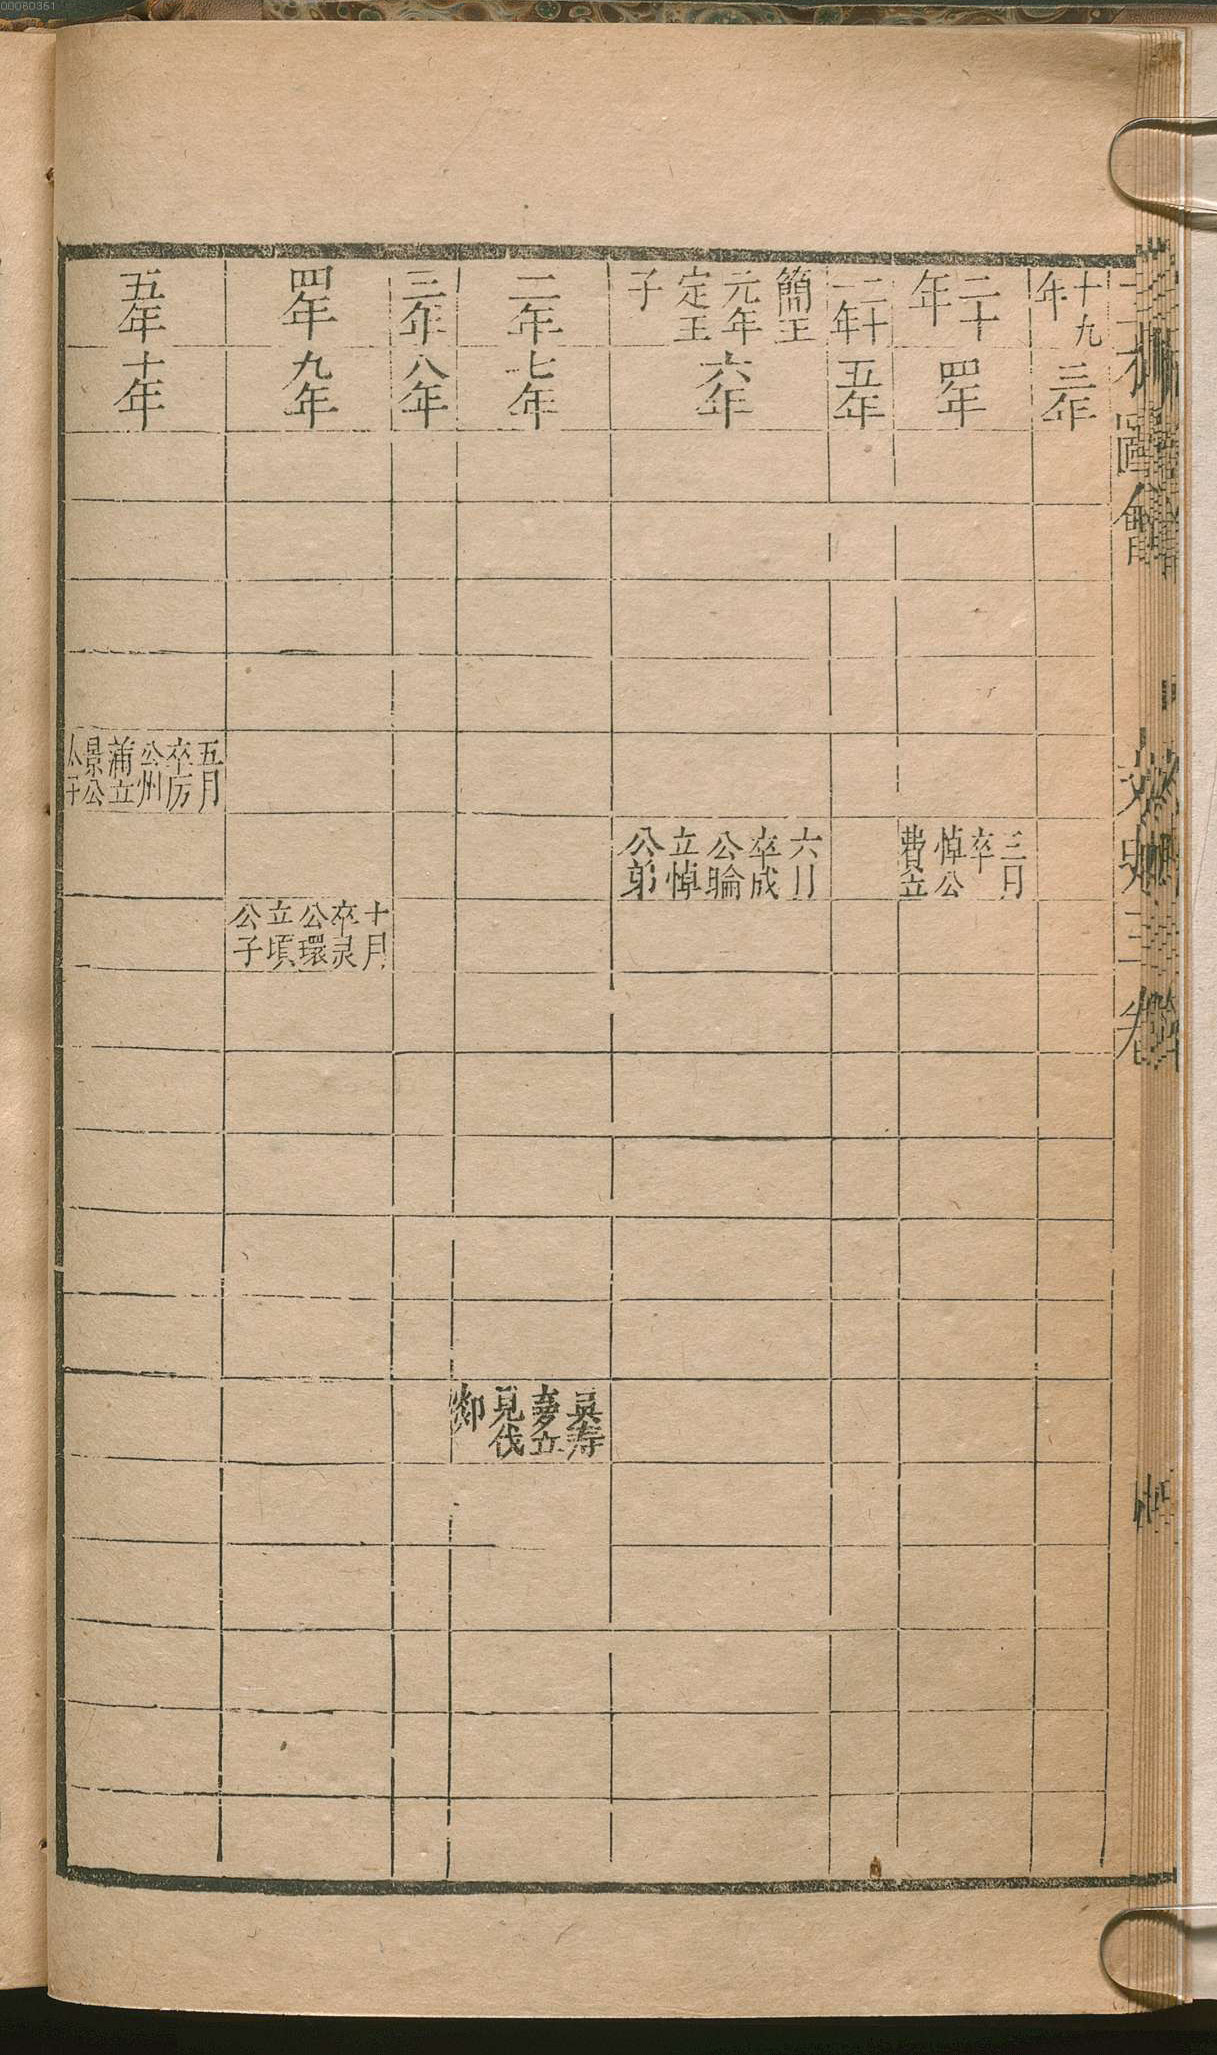 00060351
三才圖會
文史三卷
十九年
三年
二十年
四年
三月卒悼公費立
二十一年
五年
簡王元年定王子
六年
六月卒成公睔立悼公弟
二年
七年
吳壽夢立見伐郯
三年
八年
四年
九年
十月卒灵公環立頃公子
五年
十年
五月卒厉公州蒲立景公子